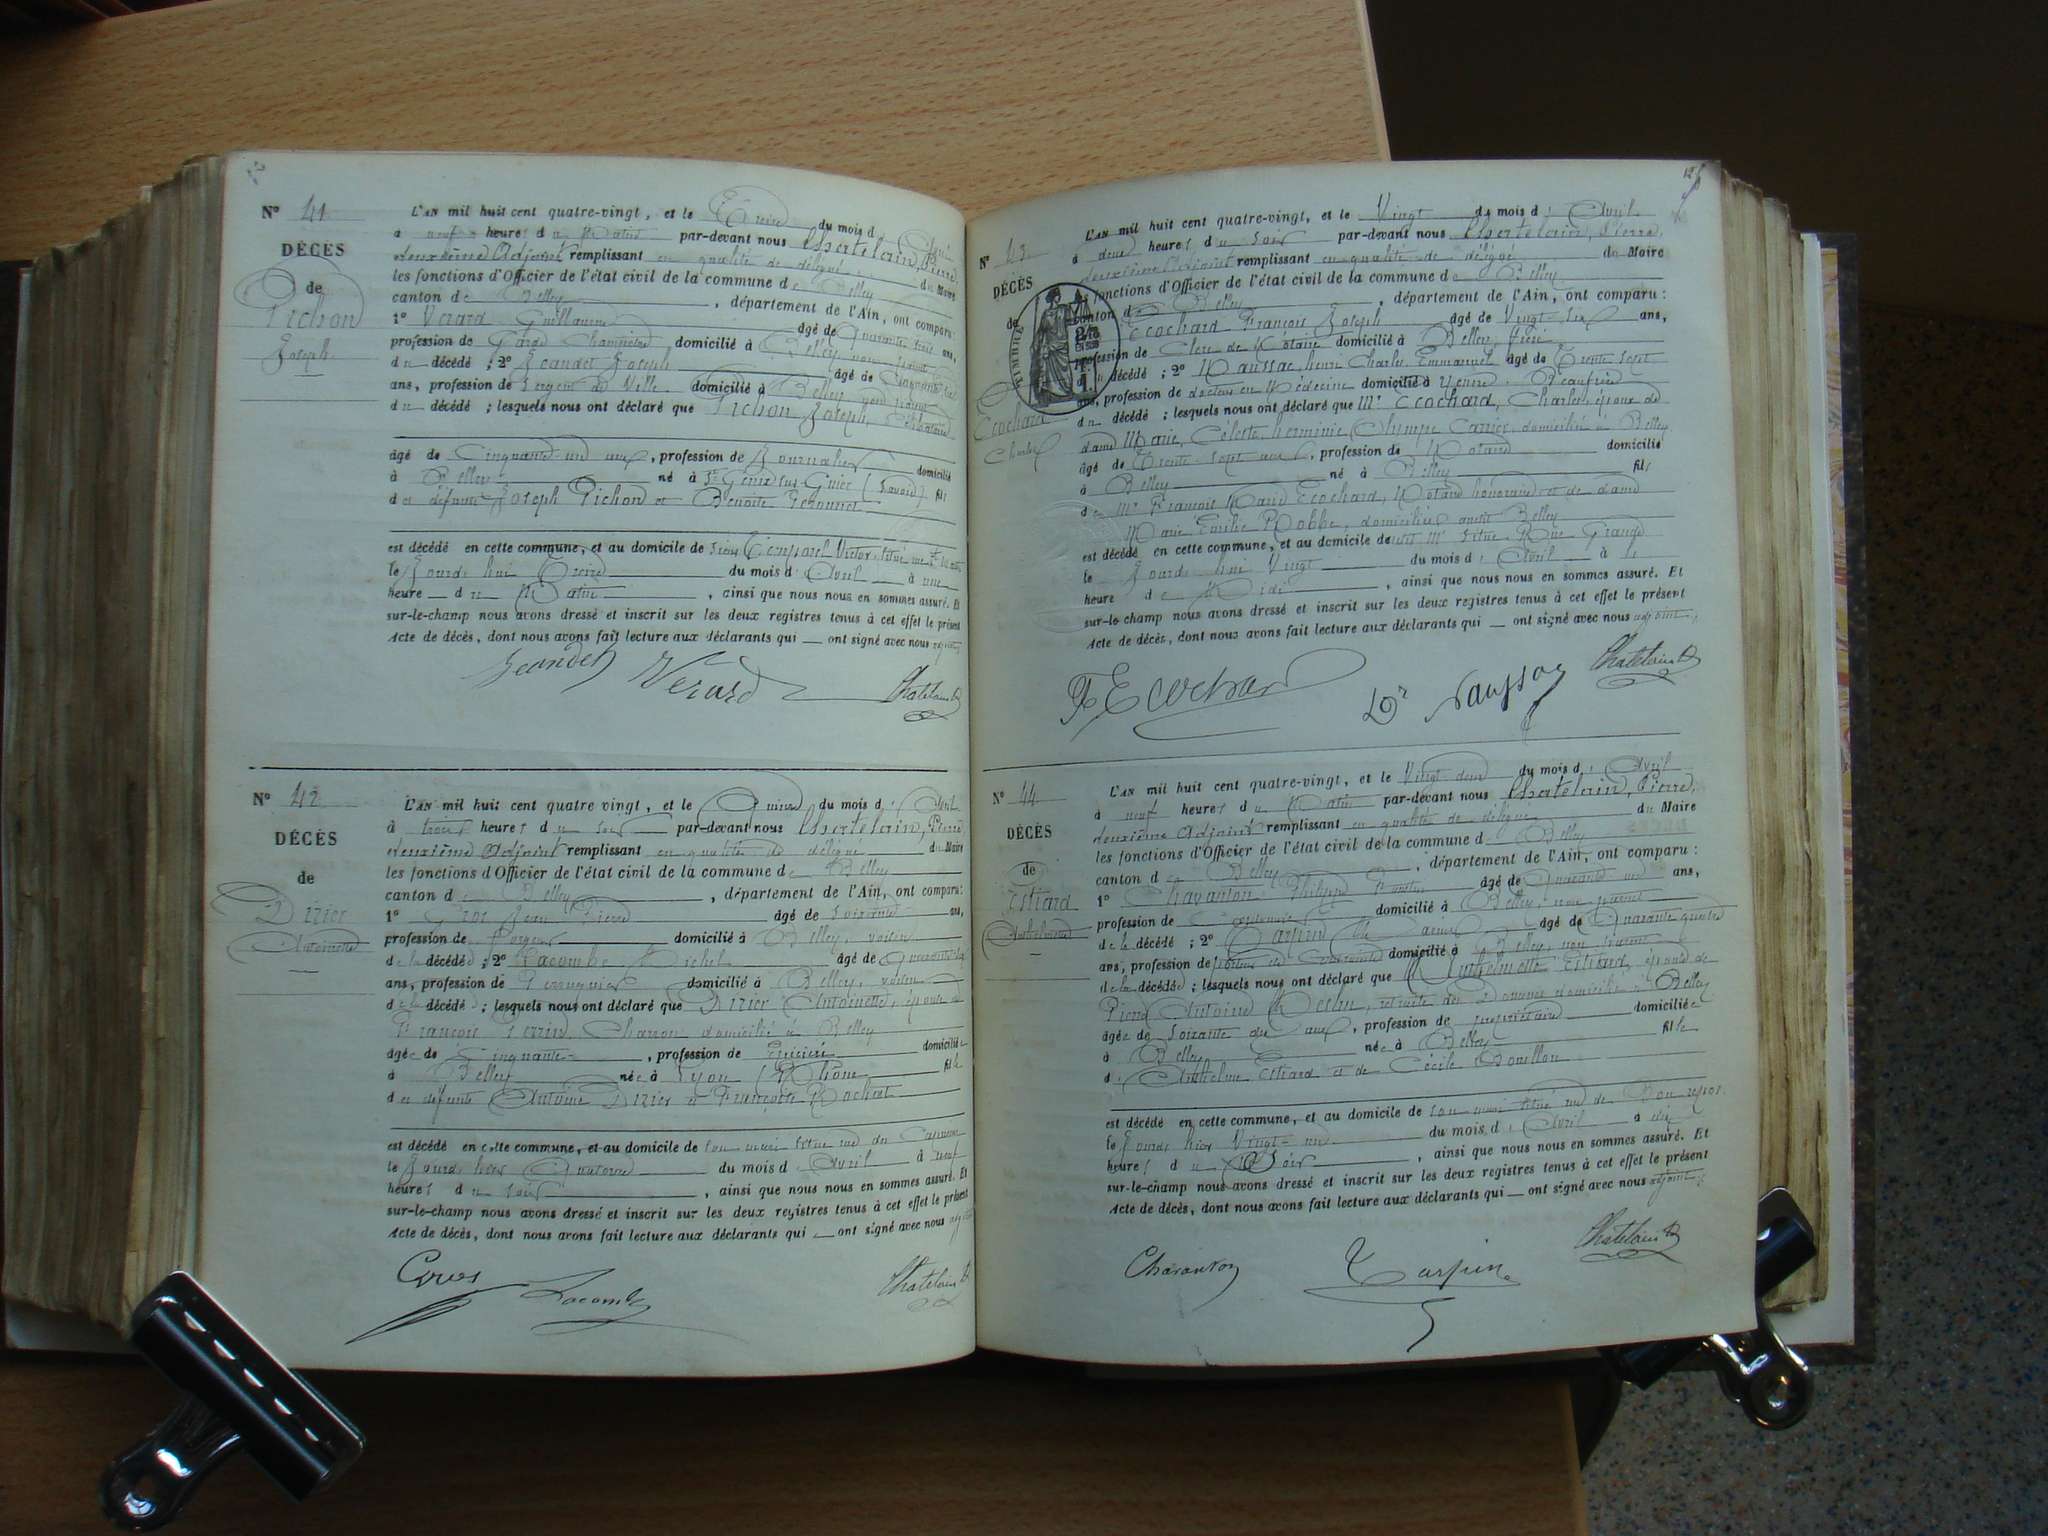 N° 41
DÉCÈS
de
Pichon
Joseph
L'AN mil huit cent quatre-vingt, et le Treize du mois d'Avril
à neuf heures du Matin par-devant nous Chatelain, Pierre,
deuxième Adjoint remplissant en qualité de délégué du Maire
les fonctions d'Officier de l'état civil de la commune de Belley
canton de Belley, département de l'Ain, ont comparu :
1° Vérard Guillaume âgé de Quarante trois ans,
profession de Garde Champêtre domicilié à Belley non parent
du décédé ; 2° Jeandet Joseph âgé de
ans, profession de Sergent de Ville domicilié à Belley non parent
du décédé ; lesquels nous ont déclaré que Pichon Joseph, Célibataire
âgé de Cinquante-un ans, profession de Journalier domicilié
à Belley né à St Genix sur Guier (Savoie) fils
des défunts Joseph Pichon et Benoite
est décédé en cette commune, et au domicile de sieur Victor, situé
le Jourd'hui Treize du mois d'Avril à une
heure du Matin, ainsi que nous nous en sommes assuré. Et
sur-le-champ nous avons dressé et inscrit sur les deux registres tenus à cet effet le présent
Acte de décès, dont nous avons fait lecture aux déclarants qui ont signé avec nous adjoint
Jeandet Vérard Chatelain P
N° 42
DÉCÈS
de
Dizier
Antoinette
L'AN mil huit cent quatre vingt, et le Quinze du mois d'Avril
à trois heures du soir par-devant nous Chatelain, Pierre,
deuxième Adjoint remplissant en qualité de délégué du Maire
les fonctions d'Officier de l'état civil de la commune de Belley
canton de Belley, département de l'Ain, ont comparu :
1° Gros Jean Pierre âgé de soixante ans,
profession de domicilié à Belley, voisin
de la décédée ; 2° Lacombe Michel âgé de
ans, profession de Perruquier domicilié à Belley, voisin
de la décédée ; lesquels nous ont déclaré que Dizier Antoinette, épouse de
François Perrin, Charron domicilié à Belley
âgée de Cinquante, profession de Epicière domiciliée
à Belley née à Lyon (Rhône) fille
des défunts Antoine Dizier et Françoise Rochat
est décédé en cette commune, et au domicile de son mari situé rue des
le Jourd'hier Quatorze du mois d'Avril à neuf
heures du soir, ainsi que nous nous en sommes assuré. Et
sur-le-champ nous avons dressé et inscrit sur les deux registres tenus à cet effet le présent
Acte de décès, dont nous avons fait lecture aux déclarants qui ont signé avec nous adjoint
Gros Lacombe Chatelain P
N° 43
DÉCÈS
de
Ecochard
Charles
TIMBRE
L'AN mil huit cent quatre-vingt, et le Vingt du mois d'Avril
à deux heures du soir par-devant nous Chatelain, Pierre,
deuxième Adjoint remplissant en qualité de délégué du Maire
fonctions d'Officier de l'état civil de la commune de Belley
canton de Belley, département de l'Ain, ont comparu :
Ecochard François Joseph âgé de Vingt-six ans,
profession de Clerc de Notaire domicilié à Belley, frère
du décédé ; 2° Naussac, henri Charles Emmanuel âgé de Trente sept
ans, profession de docteur en Médecine domicilié à Yenne
du décédé ; lesquels nous ont déclaré que Mr Ecochard, Charles, époux de
dame Marie, Céleste, herminie, Olympe Carrier, domicilié à Belley
âgé de Trente-sept ans, profession de Notaire domicilié
à Belley né à Belley fils
de Mr François Marie Ecochard, Notaire honoraire et de dame
Marie Emilie Robbe, domiciliés audit Belley
est décédé en cette commune, et au domicile dudit Mr situé Rue Grande
le Jourd'hui Vingt du mois d'Avril à
heure de Midi, ainsi que nous nous en sommes assuré. Et
sur-le-champ nous avons dressé et inscrit sur les deux registres tenus à cet effet le présent
Acte de décès, dont nous avons fait lecture aux déclarants qui ont signé avec nous adjoint.
Ecochard Dr Naussac Chatelain P
N° 44
DÉCÈS
de
Estiard
Anthelmette
L'AN mil huit cent quatre-vingt, et le Vingt-deux du mois d'Avril
à neuf heures du Matin par-devant nous Chatelain, Pierre,
deuxième Adjoint remplissant en qualité de délégué du Maire
les fonctions d'Officier de l'état civil de la commune de Belley
canton de Belley, département de l'Ain, ont comparu :
1° Chavanton Philippe âgé de Quarante ans,
profession de Cordonnier domicilié à Belley, non parent
de la décédée ; 2° Tarpin âgé de Quarante quatre
ans, profession de domicilié à Belley, non parent
de la décédée ; lesquels nous ont déclaré que Anthelmette Estiard, épouse de
Pierre Antoine, retraité des Douanes domicilié à Belley
âgée de soixante dix ans, profession de propriétaire domiciliée
à Belley née à Belley fille
d'Anthelme Estiard et de Cécile Bouillon
est décédé en cette commune, et au domicile de son mari situé rue de Bon repos.
le Jourd'hier Vingt-un du mois d'Avril à dix
heures du Soir, ainsi que nous nous en sommes assuré. Et
sur-le-champ nous avons dressé et inscrit sur les deux registres tenus à cet effet le présent
Acte de décès, dont nous avons fait lecture aux déclarants qui ont signé avec nous adjoint.
Chavanton Tarpin Chatelain P